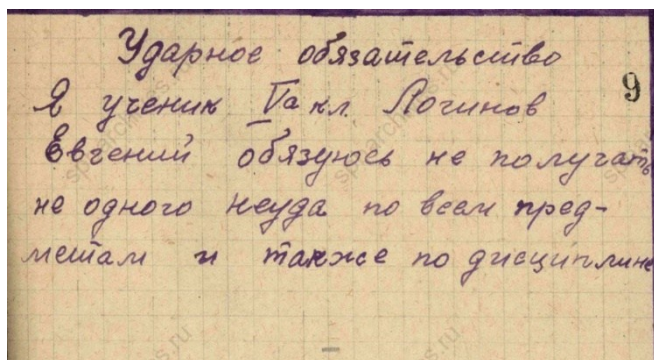 Ударное обязательство
9
Я ученик Vа кл. Логинов
Евгений обязуюсь не получать
не одного неуда по всем пред-
метам и также по дисциплине